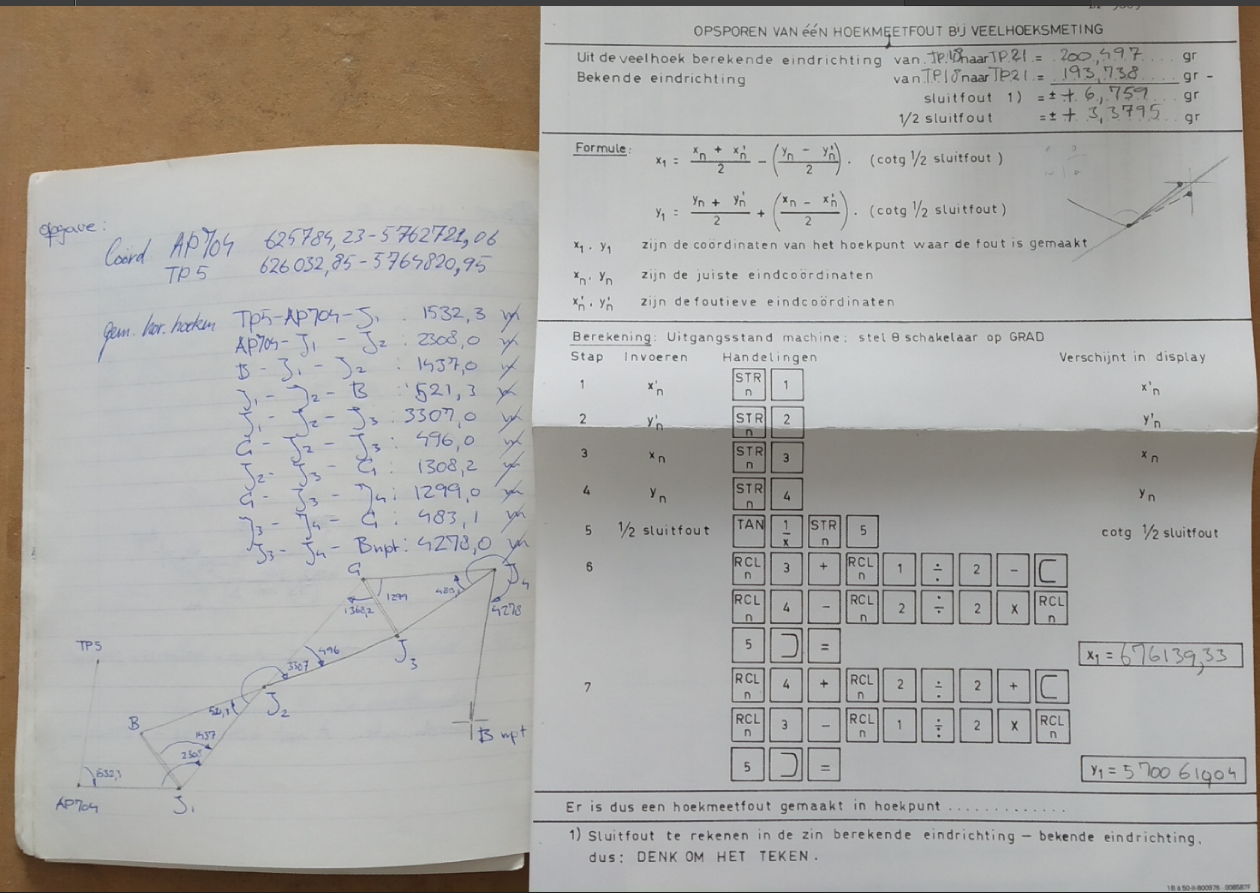 opgave:
Coörd AP704 625784,23-5762721,06
TP5 626032,85-5764820,95
gem. hor. hoeken TP5-AP704-J1: 1532,3 v
AP704-J1-J2: 2308,0 v
B-J1-J2: 1437,0 v
J1-J2-B: 521,3 v
J1-J2-J3: 3307,0 v
G-J2-J3: 496,0 v
J2-J3-G: 1308,2 v
G-J3-J4: 1299,0 v
J3-J4-G: 483,1 v
J3-J4-Bnpt: 4278,0 v
G
J4
1299
483,1
1368,2
4278
TP5
496
J3
3307
J2
B
521,3
Bnpt
1437
2308
1532,3
AP704
J1
OPSPOREN VAN ééN HOEKMEETFOUT BIJ VEELHOEKSMETING
Uit de veelhoek berekende eindrichting van TP18 naar TP21 = 200,497 gr
Bekende eindrichting van TP18 naar TP21 = 193,738 gr -
sluitfout 1) = ± + 6,759 gr
1/2 sluitfout = ± + 3,3795 gr
Formule: x1 = (xn + x'n)/2 - ((yn - y'n)/2) . (cotg 1/2 sluitfout)
y1 = (yn + y'n)/2 + ((xn - x'n)/2) . (cotg 1/2 sluitfout)
x1 . y1 zijn de coördinaten van het hoekpunt waar de fout is gemaakt
xn . yn zijn de juiste eindcoördinaten
x'n . y'n zijn de foutieve eindcoördinaten
Berekening: Uitgangsstand machine: stel θ schakelaar op GRAD
Stap Invoeren Handelingen Verschijnt in display
1 x'n STR n 1 x'n
2 y'n STR n 2 y'n
3 xn STR n 3 xn
4 yn STR n 4 yn
5 1/2 sluitfout TAN 1/x STR n 5 cotg 1/2 sluitfout
6 RCL n 3 + RCL n 1 ÷ 2 - [
RCL n 4 - RCL n 2 ÷ 2 x RCL n
5 ] = x1 = 676139,33
7 RCL n 4 + RCL n 2 ÷ 2 + [
RCL n 3 - RCL n 1 ÷ 2 x RCL n
5 ] = y1 = 5700619,04
Er is dus een hoekmeetfout gemaakt in hoekpunt .............
1) Sluitfout te rekenen in de zin berekende eindrichting - bekende eindrichting,
dus: DENK OM HET TEKEN.